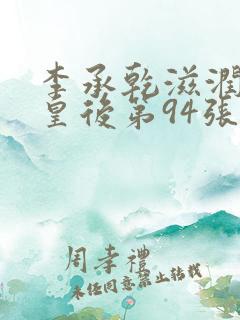 李承乾滋润
皇後第94張
周幸禮
未任同意禁止转载